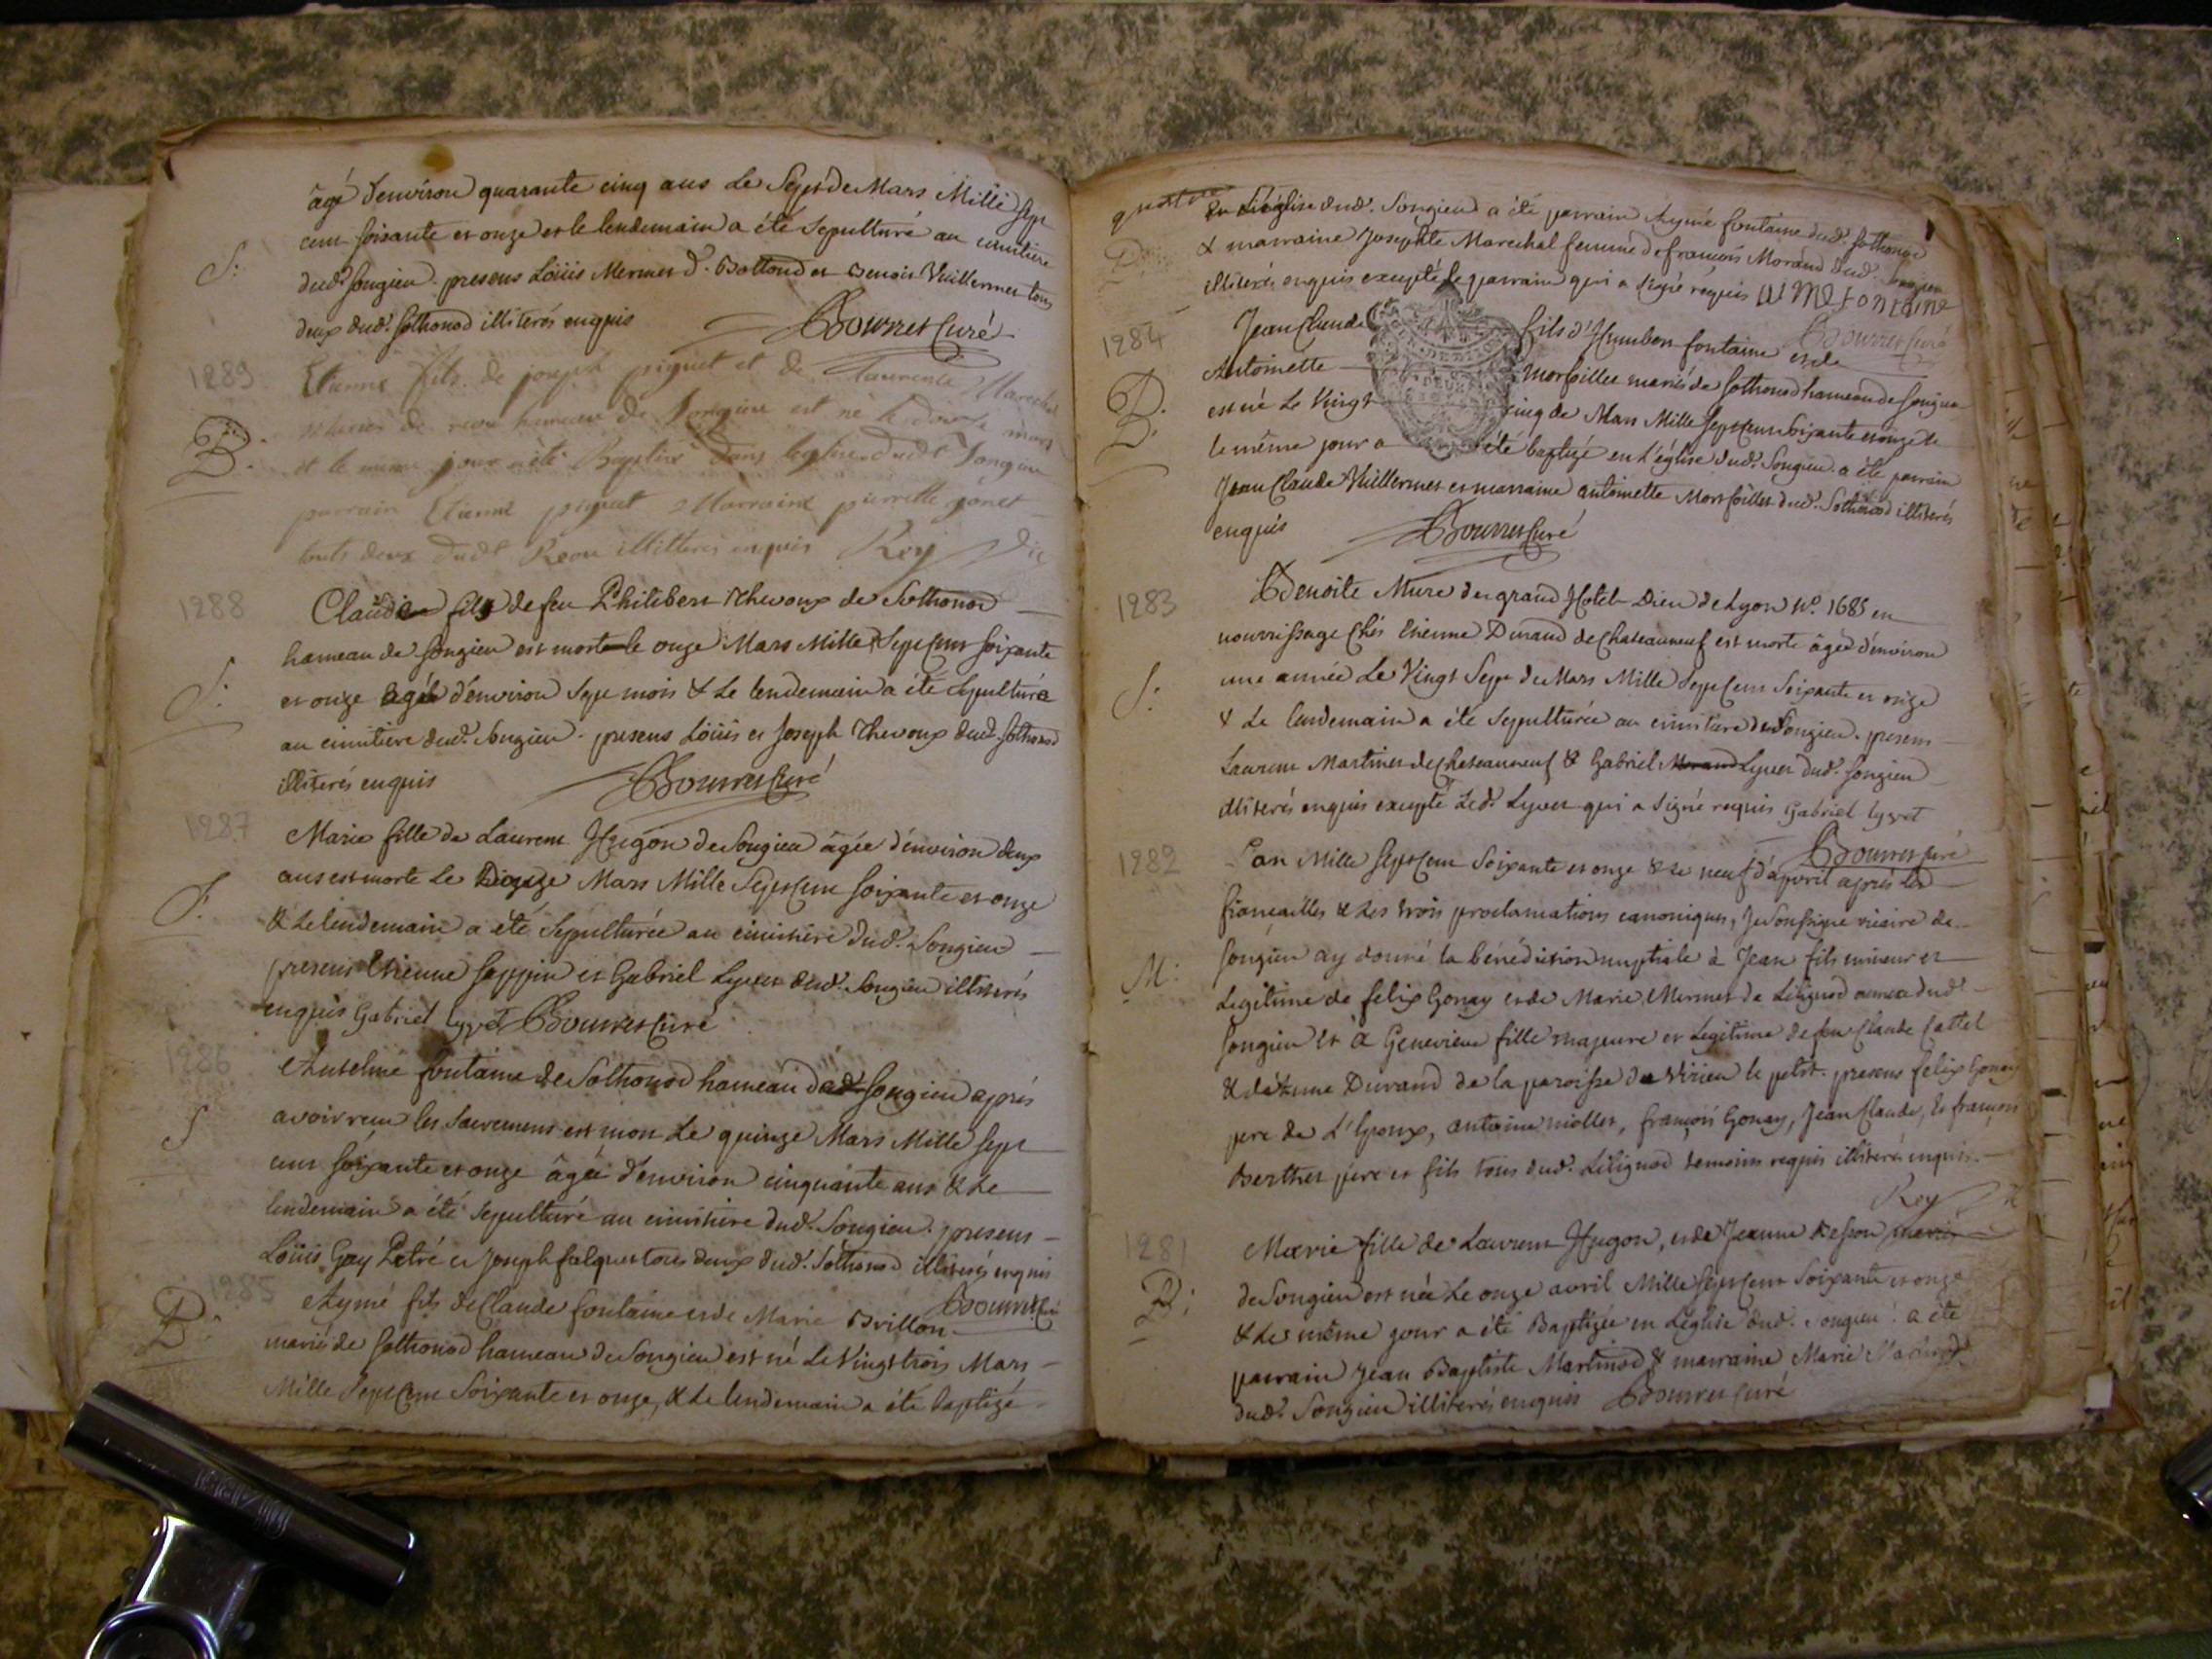 âgé d'environ quarante cinq ans le Sept de Mars Mille Sept
cent soixante et onze et le lendemain a été Sepulturé au cimitiere
S:
dud.t Songieu. presens Loüis Mermet d. et Benoit Vuillermet tous
deux dud.t Sothonod illiterés enquis Bourret Curé
1289
Etienne fils de joseph piquet et de Laurence Marechal
mariés de hameau de Songieu est né le douze mars
B.
et le meme jour a été Baptisé dans leglise dudt Songieu
parrain Etienne piquet Marraine pierrette gonet
touts deux dudt illitteres enquis Roy vic
1288
Claude fils de feu Philibert Thevoux de Sothonod
hameau de Songieu est mort le onze Mars Mille Sept Cent soixante
S.
et onze agé d'environ Sept mois & Le lendemain a été Sepulturé
au cimitiere dud.t Songieu. presens Loüis et Joseph Thevoux dud.t Sothonod
illiterés enquis Bourret Curé
1287
Marie fille de Laurent Hugon de Songieu âgée d'environ deux
ans est morte Le Mars Mille Sept Cent soixante et onze
S.
& Le lendemain a été Sepulturée au cimitiere dud.t Songieu
presens Etienne Seppin et Gabriel Lyvet dud.t Songieu illiterés
enquis Gabriel lyvet Bourret Curé
1286
Anselme fontaine de Sothonod hameau dud.t Songieu après
S
avoir reçu les Sacremens est mort Le quinze Mars Mille Sept
cent soixante et onze âgé d'environ cinquante ans & Le
lendemain a été Sepulturé au cimitiere dud.t Songieu. presens
Loüis Gay Petré et Joseph falquet tous deux dud.t Sothonod illiterés enquis
1285 Bourret Curé
B:
Aymé fils de Claude fontaine et de Marie Brillon
mariés de Sothonod hameau de Songieu est né Le Vingt trois Mars
Mille Sept Cent Soixante et onze, & Le lendemain a été baptizé
en L'église dud.t Songieu a été parrain Aymé fontaine dud.t Sothonod
& marraine Josephte Marechal femme de francois Morand dud.t Songieu
illiterés enquis excepté le parrain qui a signé requis fontaine
Bourret Curé
1284
Jean Claude fils d'Humbert fontaine et de
Antoinette Morfoillet mariés de Sothonod hameau de Songieu
B.
est né Le Vingt cinq de Mars Mille Sept Cent Soixante et onze &
le même jour a été baptizé en L'église dud.t Songieu. a été parrain
Jean Claude Vuillermet et marraine antoinette Morfoillet dud.t Sothonod illiterés
enquis Bourret Curé
1283
Benoite Mure du grand Hotel-Dieu de Lyon N.o 1685 en
nourrissage chés Etienne Durand de Chateauneuf est morte âgée d'environ
S.
une année Le Vingt Sept de Mars Mille Sept Cent Soixante et onze
& Le lendemain a été Sepulturée au cimitiere de Songieu. presens
Laurent Martinet de Chateauneuf & Gabriel Morand Lyvet dud.t Songieu
illiterés enquis excepté Led.t Lyvet qui a Signé requis Gabriel lyvet
Bourret Curé
1282
L'an Mille Sept Cent Soixante et onze & Le neuf d'apvril après les
fiancailles & Les trois proclamations canoniques, Je Soussigné vicaire de
M:
Songieu ay donné la bénédiction nuptiale à Jean fils mineur et
Legitime de felix Gonay et de Marie Mermet de Lilignod dud.t
Songieu et à Genevieve fille majeure et Legitime de feu Claude Cattel
& de Anne Durand de la paroisse de Virieu le petit. presens felix Gonay
pere de L'Epoux, antoine miollet, françois Gonay, Jean Claude, & françois
Berthet père et fils tous dud.t Lilignod temoins requis illiterés enquis.
Roy
1281
Marie fille de Laurent Hugon, et de Jeanne Besson mariés
B:
de Songieu est née Le onze avril Mille Sept Cent Soixante et onze
& Le même jour a été Baptizée en L'église dud.t Songieu: a été
parrain Jean Baptiste Martinod & marraine Marie
dud.t Songieu illiterés enquis Bourret Curé